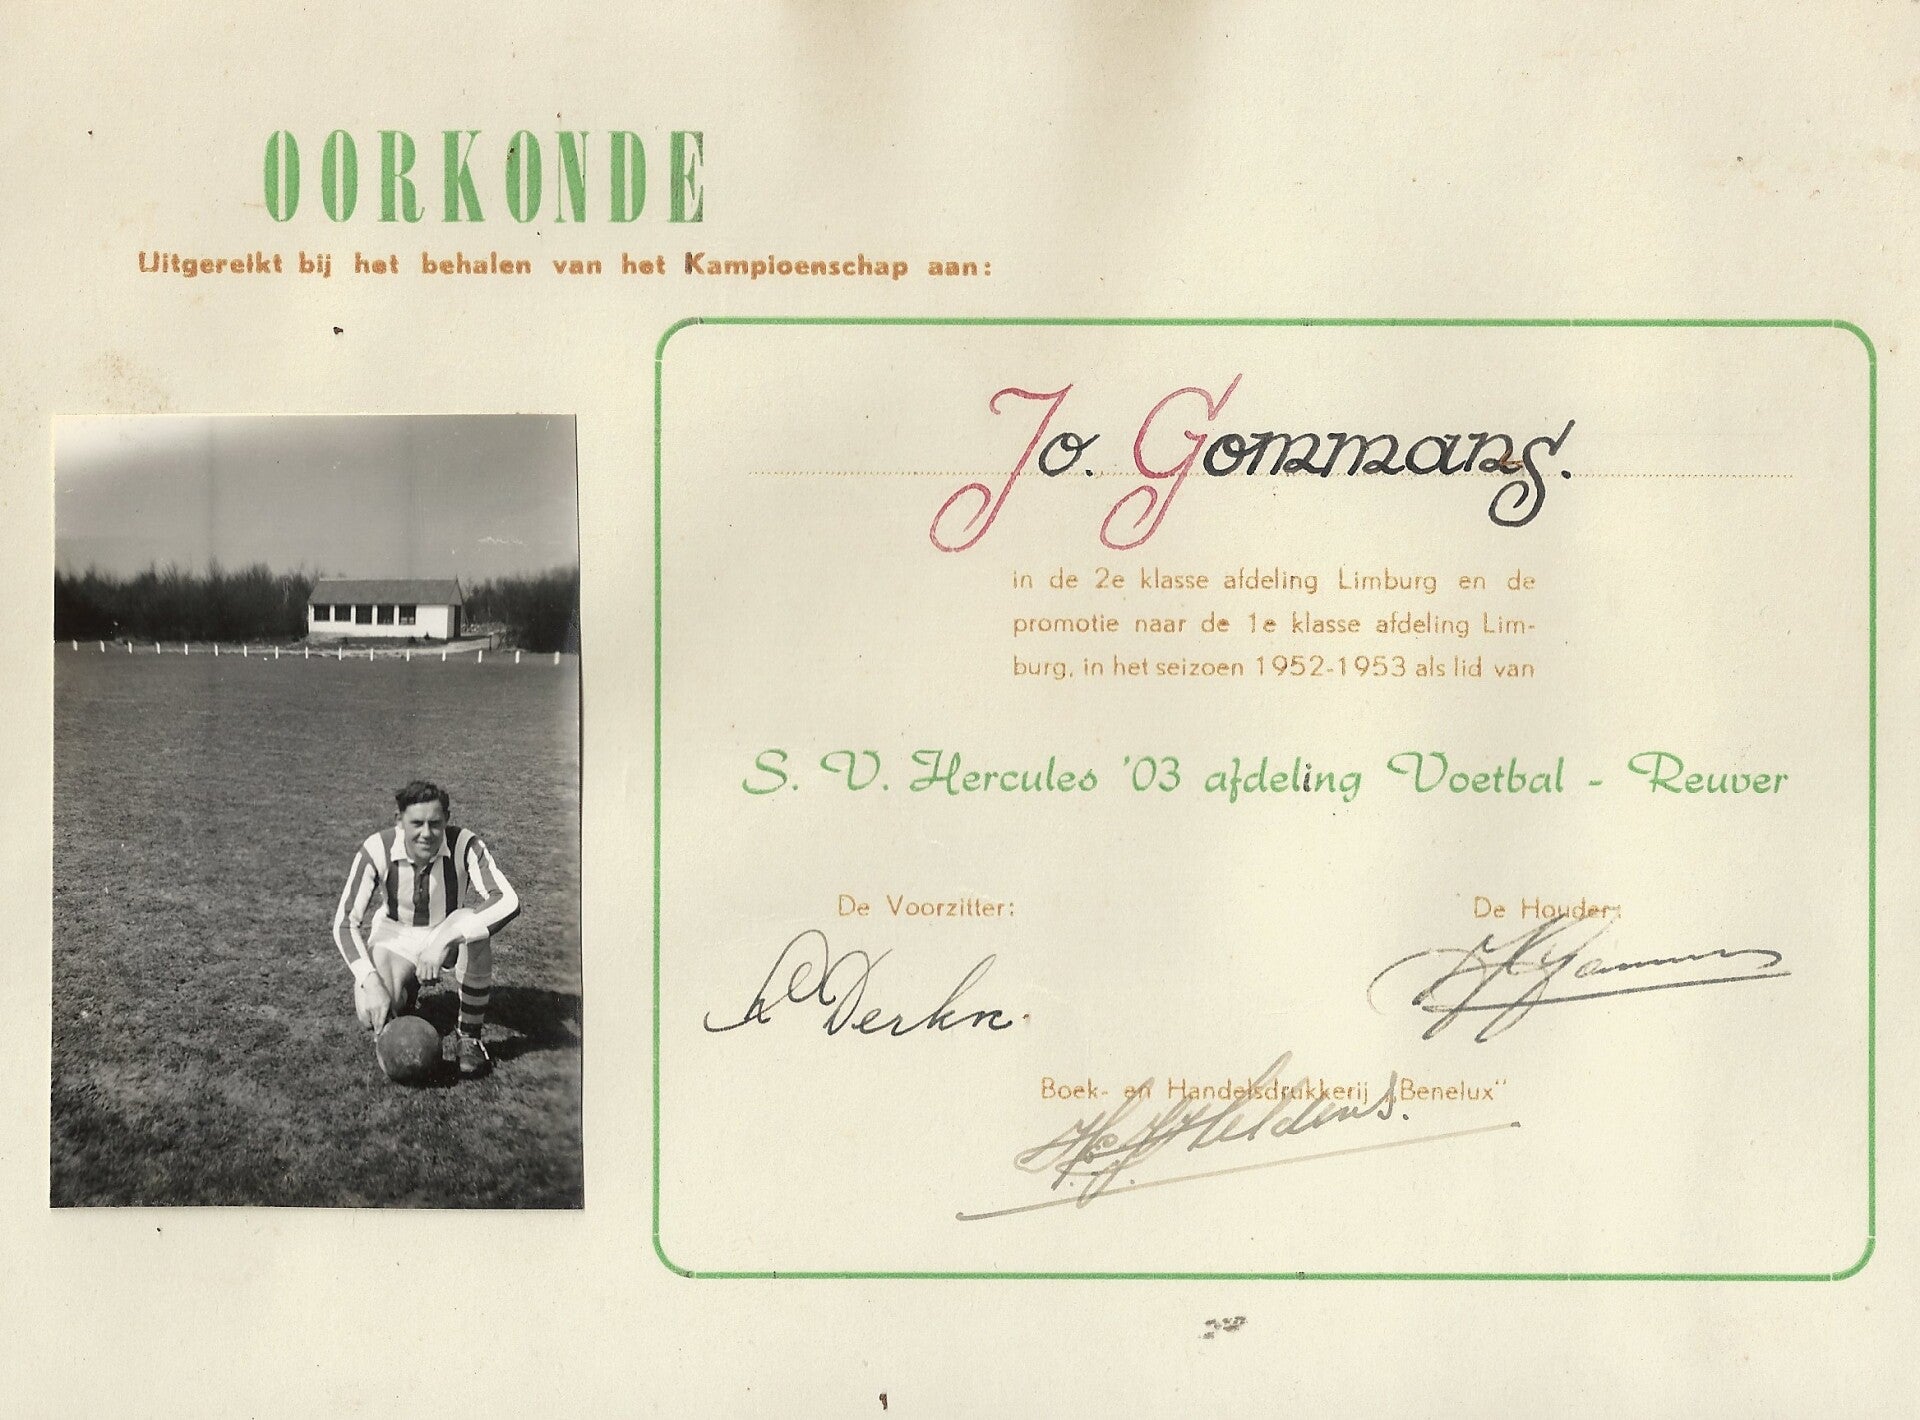 OORKONDE
Uitgereikt bij het behalen van het Kampioenschap aan:
Jo. Gommans.
in de 2e klasse afdeling Limburg en de
promotie naar de 1e klasse afdeling Lim-
burg, in het seizoen 1952-1953 als lid van
S. V. Hercules '03 afdeling Voetbal - Reuver
De Voorzitter:
De Houder:
Derkx.
Boek- en Handelsdrukkerij „Benelux"
Heldens.